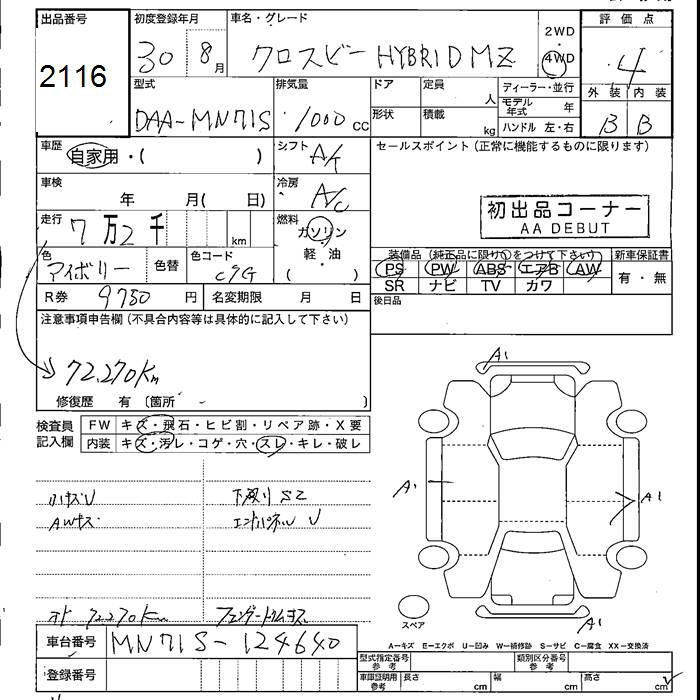 出品番号
2116
初度登録年月
30 8月
車名・グレード
クロスビー HYBRID MZ
2WD
・
4WD
評価点
4
型式
DAA-MN71S
排気量
1000 cc
ドア
定員
人
形状
積載
kg
ディーラー・並行
モデル年式 年
ハンドル 左・右
外装 内装
B B
車歴
自家用・( )
シフト
A/t
セールスポイント (正常に機能するものに限ります)
車検
年 月( 日)
冷房
A/C
初出品コーナー
AA DEBUT
走行
7万2千
km
燃料
ガソリン
軽・油
( )
色
アイボリー
色替
色コード
C9G
装備品 (純正品に限り○をつけて下さい)
新車保証書
PS PW ABS エアB AW
SR ナビ TV カワ
有・無
R券 9750 円
名変期限 月 日
後日品
注意事項申告欄 (不具合内容等は具体的に記入して下さい)
72,270Km
修復歴 有 〔箇所 〕
検査員
記入欄
FW キズ・飛石・ヒビ割・リペア跡・X要
内装 キズ・汚レ・コゲ・穴・スレ・キレ・破レ
小キズU
AWキズ
下廻りS2
エンドパネル U
72270Km
A1
A1
A1
A1
スペア
車台番号 MN71S-124640
登録番号
A=キズ E=エクボ U=凹み W=補修跡 S=サビ C=腐食 XX=交換済
型式指定番号
参考
類別区分番号
参考
車庫証明用
参考
長さ cm
幅 cm
高さ cm